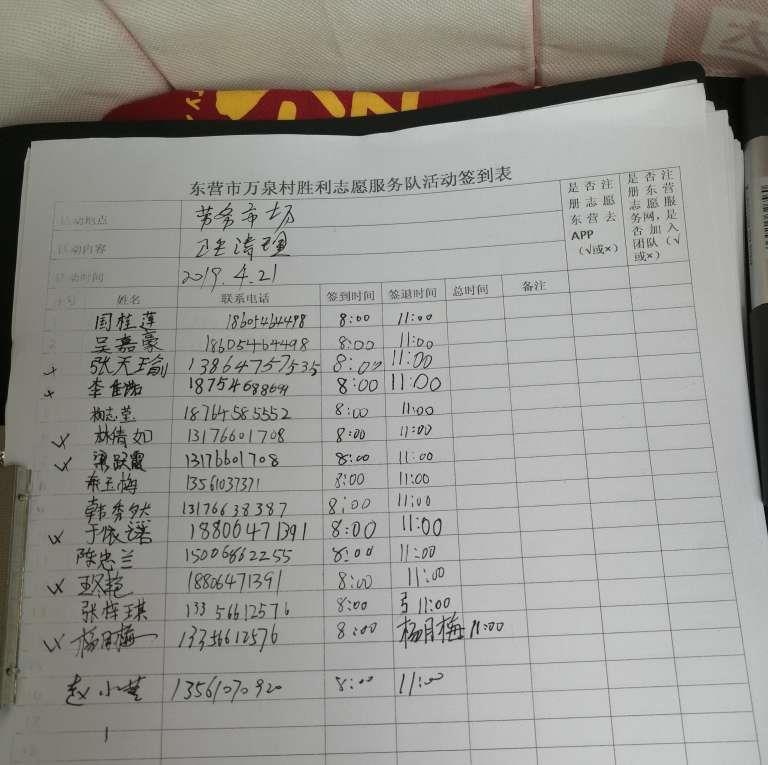 东营市万泉村胜利志愿服务队活动签到表
活动地点 劳务市场
活动内容 卫生清理
活动时间 2019.4.21
是否注册志愿东营去APP（√或×）
是否注册东营志愿服务网，是否加入团队（√或×）
序号 姓名 联系电话 签到时间 签退时间 总时间 备注
国桂莲 18605464498 8:00 11:00
吴嘉豪 18605464498 8:00 11:00
× 张天瑜 13864757535 8:00 11:00
× 李 8:00 11:00
杨志莹 18764585552 8:00 11:00
林倩如 13176601708 8:00 11:00
梁跃霞 13176601708 8:00 11:00
玉梅 13561037371 8:00 11:00
韩秀然 13176638387 8:00 11:00
于依诺 18806471391 8:00 11:00
陈忠兰 15006862255 8:00 11:00
18806471391 8:00 11:00
张梓琪 13356612576 8:00 11:00
杨月梅 13356612576 8:00 杨月梅 11:00
赵小莹 13561070920 8:00 11:00